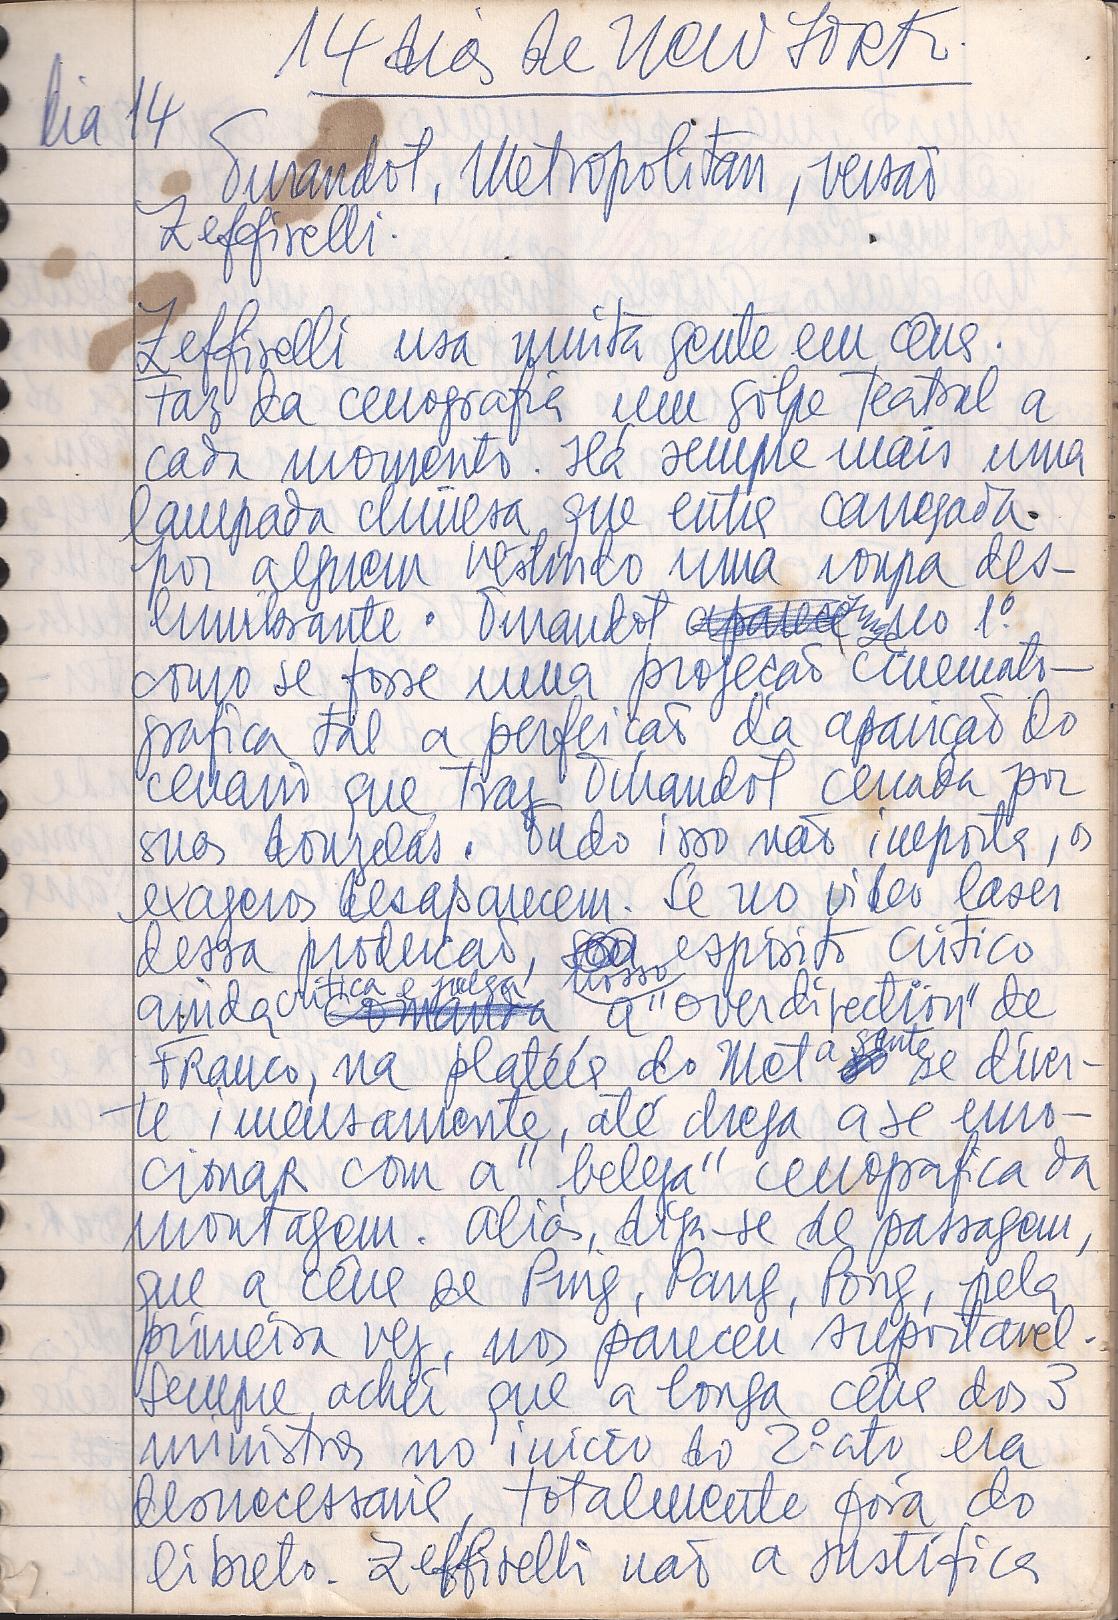 14 dias de New York.
dia 14
Turandot, Metropolitan, versão
Zeffirelli.
Zeffirelli usa muita gente em cena.
Faz da cenografia um golpe teatral a
cada momento. Há sempre mais uma
lampada chinesa que entra carregada
por alguem vestindo uma roupa des-
lumbrante. Turandot no 1º
como se fosse uma projecão cinemato-
grafica tal a perfeicão da aparicão do
cenario que traz Turandot cercada por
suas donzelas. Tudo isso não importa, os
exageros desaparecem. Se no video laser
dessa producão, nosso espirito critico
ainda critica e julga a "overdirection" de
Franco, na platéia do Met a gente se diver-
te imensamente, até chega a se emo-
cionar com a "beleza" cenografica da
montagem. Aliás, diga-se de passagem,
que a cena de Ping, Pang, Pong, pela
primeira vez, nos pareceu suportavel.
Sempre achei que a longa cena dos 3
ministros no inicio do 2º ato era
desnecessaria, totalmente fora do
libreto. Zeffirelli não a justifica